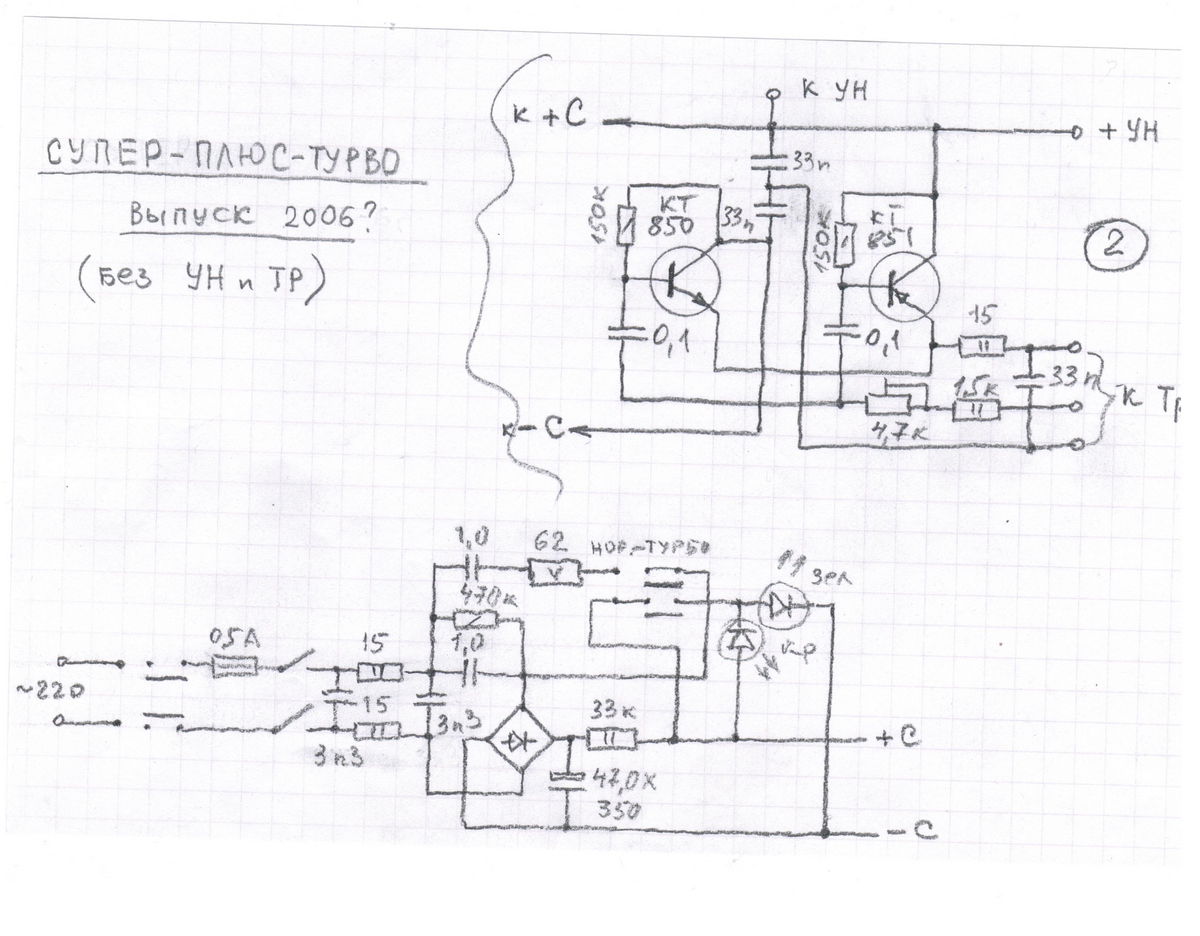 СУПЕР-ПЛЮС-ТУРБО
Выпуск 2006?
(без УН и ТР)
К УН
К + С
+ УН
33n
150К
КТ
850
33n
150К
КТ
851
2
15
0,1
0,1
33n
1,5к
К Тр
4,7к
К - С
1,0
62
НОР.-ТУРБО
зел
470к
кр
05А
15
1,0
~220
15
3n3
33к
3n3
+ С
47,0 X
350
- С